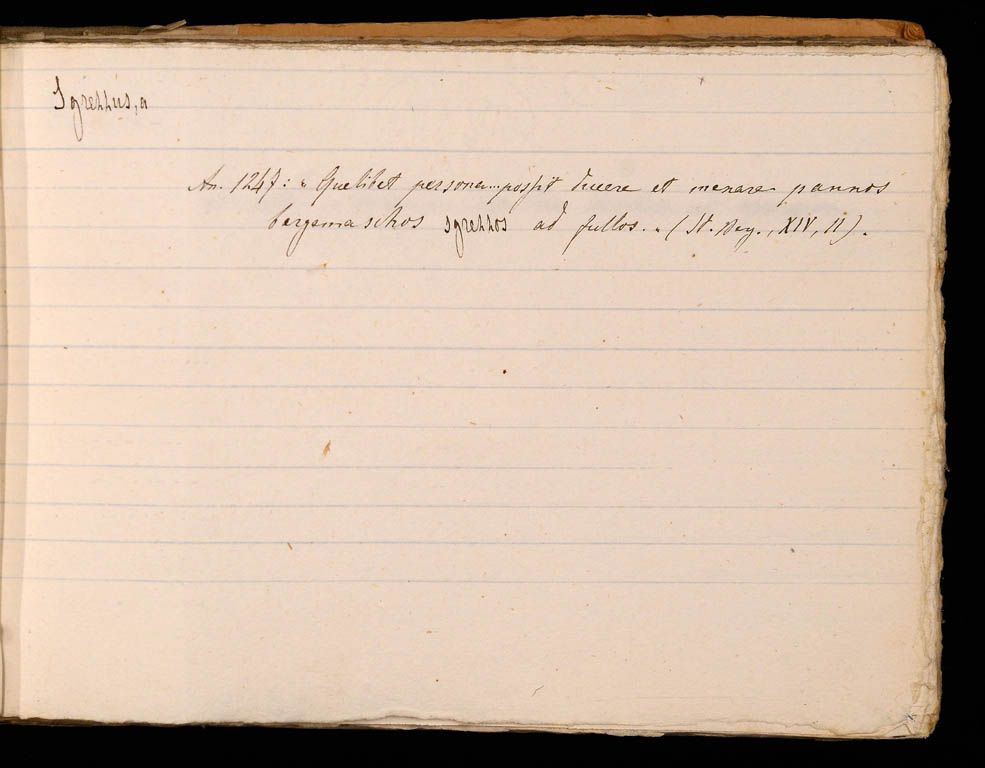 Sgrezzus, a
An. 1247: « Quelibet persona... possit ducere et menare pannos
bergamaschos sgrezzos ad fullos. » (St. Reg., XIV, 11).